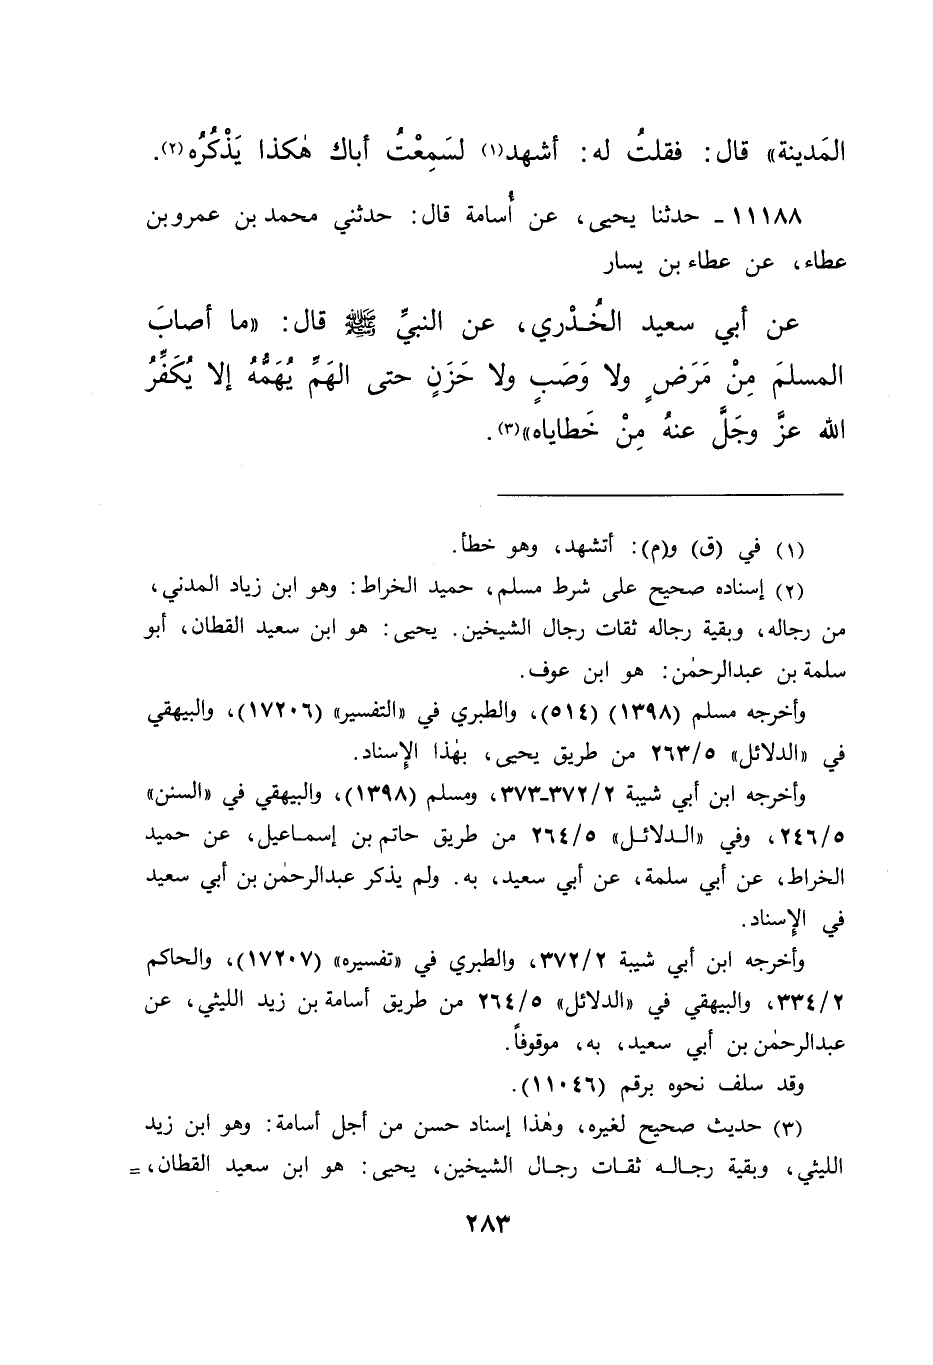 المَدينة» قال: فقلتُ له: أشهد(١) لسَمِعْتُ أباك هٰكذا يَذْكُرُه(٢).
١١١٨٨ ـ حدثنا يحيى، عن أُسامة قال: حدثني محمد بن عمرو بن
عطاء، عن عطاء بن يسار
عن أبي سعيد الخُدْري، عن النبيِّ ﷺ قال: «ما أصابَ
المسلمَ مِنْ مَرَضٍ ولا وَصَبٍ ولا حَزَنٍ حتى الهَمِّ يُهَمُّهُ إلا يُكَفِّرُ
الله عزَّ وجَلَّ عنهُ مِنْ خَطاياه»(٣).
(١) في (ق) و(م): أتشهد، وهو خطأ.
(٢) إسناده صحيح على شرط مسلم، حميد الخراط: وهو ابن زياد المدني،
من رجاله، وبقية رجاله ثقات رجال الشيخين. يحيى: هو ابن سعيد القطان، أبو
سلمة بن عبدالرحمٰن: هو ابن عوف.
وأخرجه مسلم (١٣٩٨) (٥١٤)، والطبري في «التفسير» (١٧٢٠٦)، والبيهقي
في «الدلائل» ٢٦٣/٥ من طريق يحيى، بهٰذا الإسناد.
وأخرجه ابن أبي شيبة ٣٧٢/٢-٣٧٣، ومسلم (١٣٩٨)، والبيهقي في «السنن»
٢٤٦/٥، وفي «الدلائل» ٢٦٤/٥ من طريق حاتم بن إسماعيل، عن حميد
الخراط، عن أبي سلمة، عن أبي سعيد، به. ولم يذكر عبدالرحمٰن بن أبي سعيد
في الإسناد.
وأخرجه ابن أبي شيبة ٣٧٢/٢، والطبري في «تفسيره» (١٧٢٠٧)، والحاكم
٣٣٤/٢، والبيهقي في «الدلائل» ٢٦٤/٥ من طريق أسامة بن زيد الليثي، عن
عبدالرحمٰن بن أبي سعيد، به، موقوفاً.
وقد سلف نحوه برقم (١١٠٤٦).
(٣) حديث صحيح لغيره، وهٰذا إسناد حسن من أجل أسامة: وهو ابن زيد
الليثي، وبقية رجاله ثقات رجال الشيخين، يحيى: هو ابن سعيد القطان، =
٢٨٣